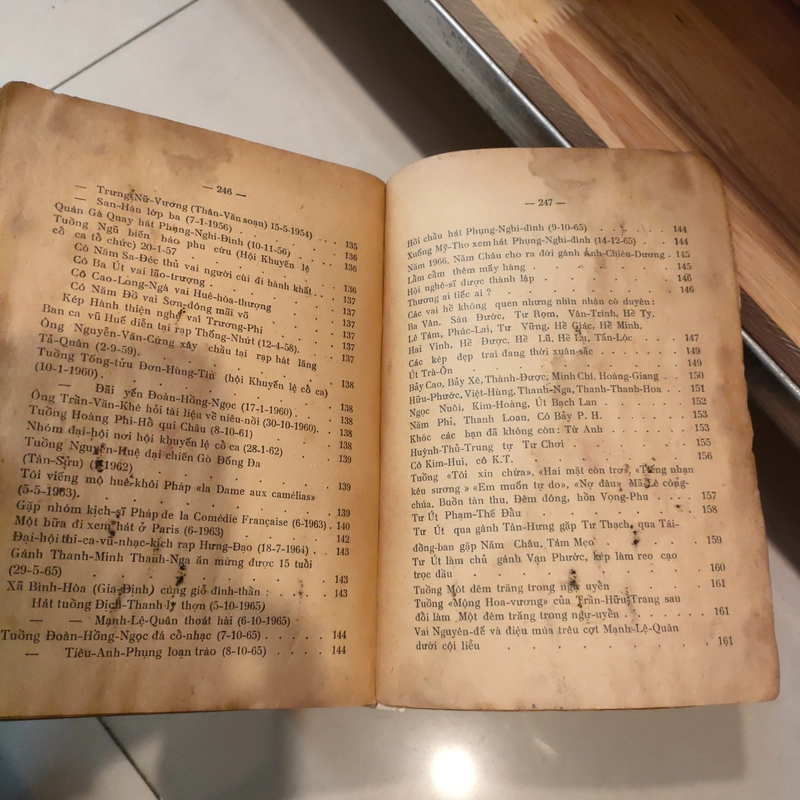 — 246 —
— Trưng-Nữ-Vương (Thân-Văn soạn) 15-5-1954) . . . 135
— San-Hậu lớp ba (7-1-1956) . . . 136
Quán Gà Quay hát Phụng-Nghi-Đình (10-11-56) . . 136
Tuồng Ngũ biến báo phu cừu (Hội Khuyến lệ
cổ ca tổ chức) 20-1-57 . . . 136
Cô Năm Sa-Đéc thủ vai người cùi đi hành khất. . . 137
Cô Ba Út vai lão-trượng . . . 137
Cô Cao-Long-Ngà vai Huê-hòa-thượng . . . 137
Cô Năm Đồ vai Sơn-đông mãi võ . . . 137
Kép Hành thiện nghệ vai Trương-Phi . . . 137
Ban ca vũ Huế diễn tại rạp Thống-Nhứt (12-4-58). . . 137
Ông Nguyễn-Văn-Cứng xây chầu tại rạp hát lăng
Tả-Quân (2-9-59). . . . 138
Tuồng Tống-tửu Đơn-Hùng-Tín (hội Khuyến lệ cổ ca)
(10-1-1960). . . . 138
— Đãi yến Đoàn-Hồng-Ngọc (17-1-1960) . . 138
Ông Trần-Văn-Khê hỏi tài liệu về niêu-nồi (30-10-1960). . 138
Tuồng Hoàng Phi-Hổ qui Châu (8-10-61) . . . 138
Nhóm đại-hội nơi hội khuyến lệ cổ ca (28-1-62) . . .
Tuồng Nguyễn-Huệ đại chiến Gò Đống Đa
(Tân-Sửu) (1962) . . . 139
Tôi viếng mộ huê-khôi Pháp «la Dame aux camélias»
(5-5-1963). . . . 139
Gặp nhóm kịch-sĩ Pháp de la Comédie Française (6-1963) . 140
Một bữa đi xem hát ở Paris (6-1963) . . . 142
Đại-hội thi-ca-vũ-nhạc-kịch rạp Hưng-Đạo (18-7-1964) . . 143
Gánh Thanh-Minh Thanh-Nga ăn mừng được 15 tuổi
(29-5-65) . . . 143
Xã Bình-Hòa (Gia-Định) cúng giỗ đình-thần : . . . 143
Hát tuồng Địch-Thanh ly thợn (5-10-1965)
— — Mạnh-Lệ-Quân thoát hài (6-10-1965)
Tuồng Đoàn-Hồng-Ngọc đá cổ-nhạc (7-10-65) . . . 144
— Tiêu-Anh-Phụng loạn trào (8-10-65) . . . 144
— 247 —
Hồi chầu hát Phụng-Nghi-đình (9-10-65) . . . 144
Xuống Mỹ-Tho xem hát Phụng-Nghi-đình (14-12-65) . . 144
Năm 1966. Năm Châu cho ra đời gánh Ánh-Chiêu-Dương . 145
Lằm cằm thêm mấy hàng . . . 145
Hội nghệ-sĩ được thành lập . . . 146
Thương ai tiếc ai ? . . . 146
Các vai hề không quen nhưng nhìn nhân có duyên :
Ba Vân, Sáu Đước, Tư Rọm, Văn-Trinh, Hề Tỵ,
Lê Tám, Phúc-Lai, Tư Vững, Hề Giác, Hề Minh,
Hai Vinh, Hề Được, Hề Lũ, Hề Lu, Tấn-Lộc . . . 147
Các kép đẹp trai đang thời xuân-sắc . . . 149
Út Trà-Ôn . . . 149
Bảy Cao, Bảy Xê, Thành-Được, Minh Chí, Hoàng-Giang . 150
Hữu-Phước, Việt-Hùng, Thanh-Nga, Thanh-Thanh-Hoa . 151
Ngọc Nuôi, Kim-Hoàng, Út Bạch Lan . . . 152
Năm Phỉ, Thanh Loan, Cô Bảy P. H. . . . 153
Khóc các bạn đã không còn: Từ Anh . . . 153
Huỳnh-Thủ-Trung tự Tư Chơi . . . 155
Cô Kim-Hui, cô K.T. . . . 156
Tuồng «Tôi xin chừa», «Hai mặt còn trơ», «Tiếng nhạn
kêu sương » «Em muốn tự do», «Nợ đâu» Mã Lê công-
chúa, Buồn tàn thu, Đêm đông, hồn Vọng-Phu . . . 157
Tư Út Phạm-Thế Đẩu . . . 158
Tư Út qua gánh Tân-Hưng gặp Tư Thạch, qua Tái-
đồng-ban gặp Năm Châu, Tám Mẹo . . . 159
Tư Út làm chủ gánh Vạn Phước, kép làm reo cạo
trọc đầu . . . 160
Tuồng Một đêm trăng trong ngự uyển . . . 161
Tuồng «Mộng Hoa-vương» của Trần-Hữu-Trang sau
đổi làm Một đêm trăng trong ngự-uyển . . . 161
Vai Nguyên-đế và điệu múa trêu cợt Mạnh-Lệ-Quân
dưới cội liễu . . . 161